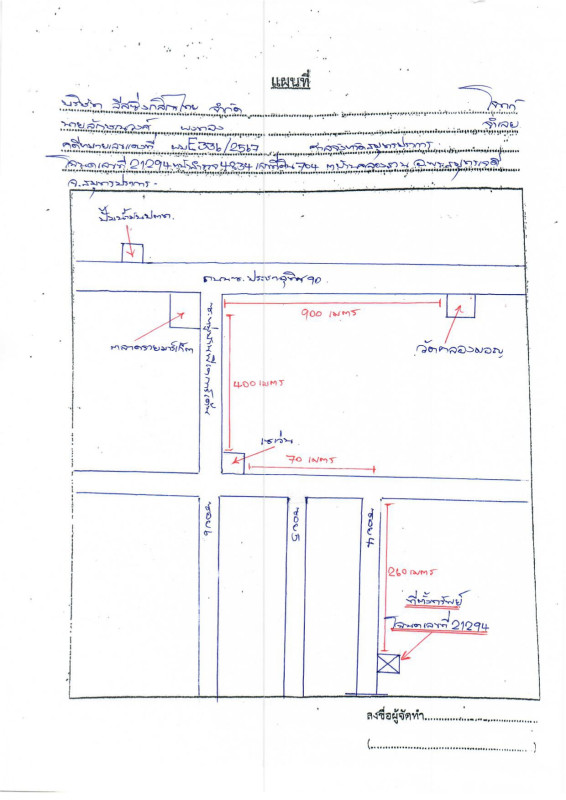 แผนที่
บริษัท ลีสซิ่งกสิกรไทย จำกัด โจทก์
นายลักษณวงศ์ จำเลย
คดีหมายเลขแดงที่ ผบE336/2567 ศาลจังหวัดสมุทรปราการ
โฉนดเลขที่ 21294 หน้าสำรวจ 4834 เลขที่ดิน 704 อ.พระสมุทรเจดีย์
จ.สมุทรปราการ
ปั๊มน้ำมันปตท.
ถนน ซ.ประชาอุทิศ 90
900 เมตร
ตลาด
วัดคลองมอญ
400 เมตร
เซเว่น
70 เมตร
ซอย 6
ซอย 5
ซอย 4
260 เมตร
ที่ตั้งทรัพย์
โฉนดเลขที่ 21294
ลงชื่อผู้จัดทำ
(
)